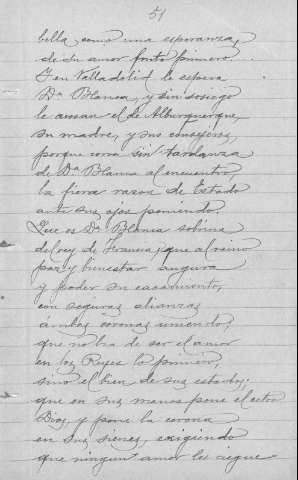 51
bella, como una esperanza,
de su amor fruto primero...
Y en Valladolid le espera
Dª Blanca, y sin sosiego
le acusan el de Alburquerque,
su madre, y sus consejeros,
porque corra sin tardanza
de Dª Blanca al encuentro,
la fiera razon de Estado
ante sus ojos poniendo.
Que es Dª Blanca sobrina
del rey de Francia, que al reino
paz y bienestar augura
y poder su casamiento,
con seguras alianzas
ambas coronas uniendo,
que no ha de ser el amor
en los Reyes lo primero,
sino el bien de sus estados;
que en sus manos pone el cetro
Dios, y pone la corona
en sus sienes, exigiendo
que ningun amor le ciegue